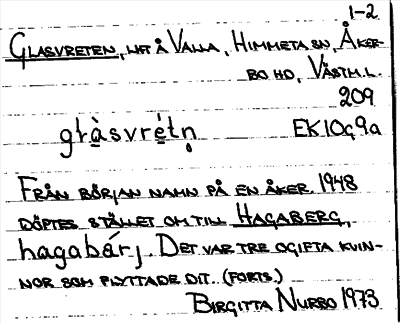 1-2
GLASVRETEN, LHT Å VALLA, HIMMETA SN, ÅKER-
BO HD, VÄSTM.L.
209
glàsvrétņ EK 10g9a
FRÅN BÖRJAN NAMN PÅ EN ÅKER. 1948
DÖPTES STÄLLET OM TILL HAGABERG,
hagabárj. DET VAR TRE OGIFTA KVIN-
NOR SOM FLYTTADE DIT. (FORTS.)
BIRGITTA NURBO 1973